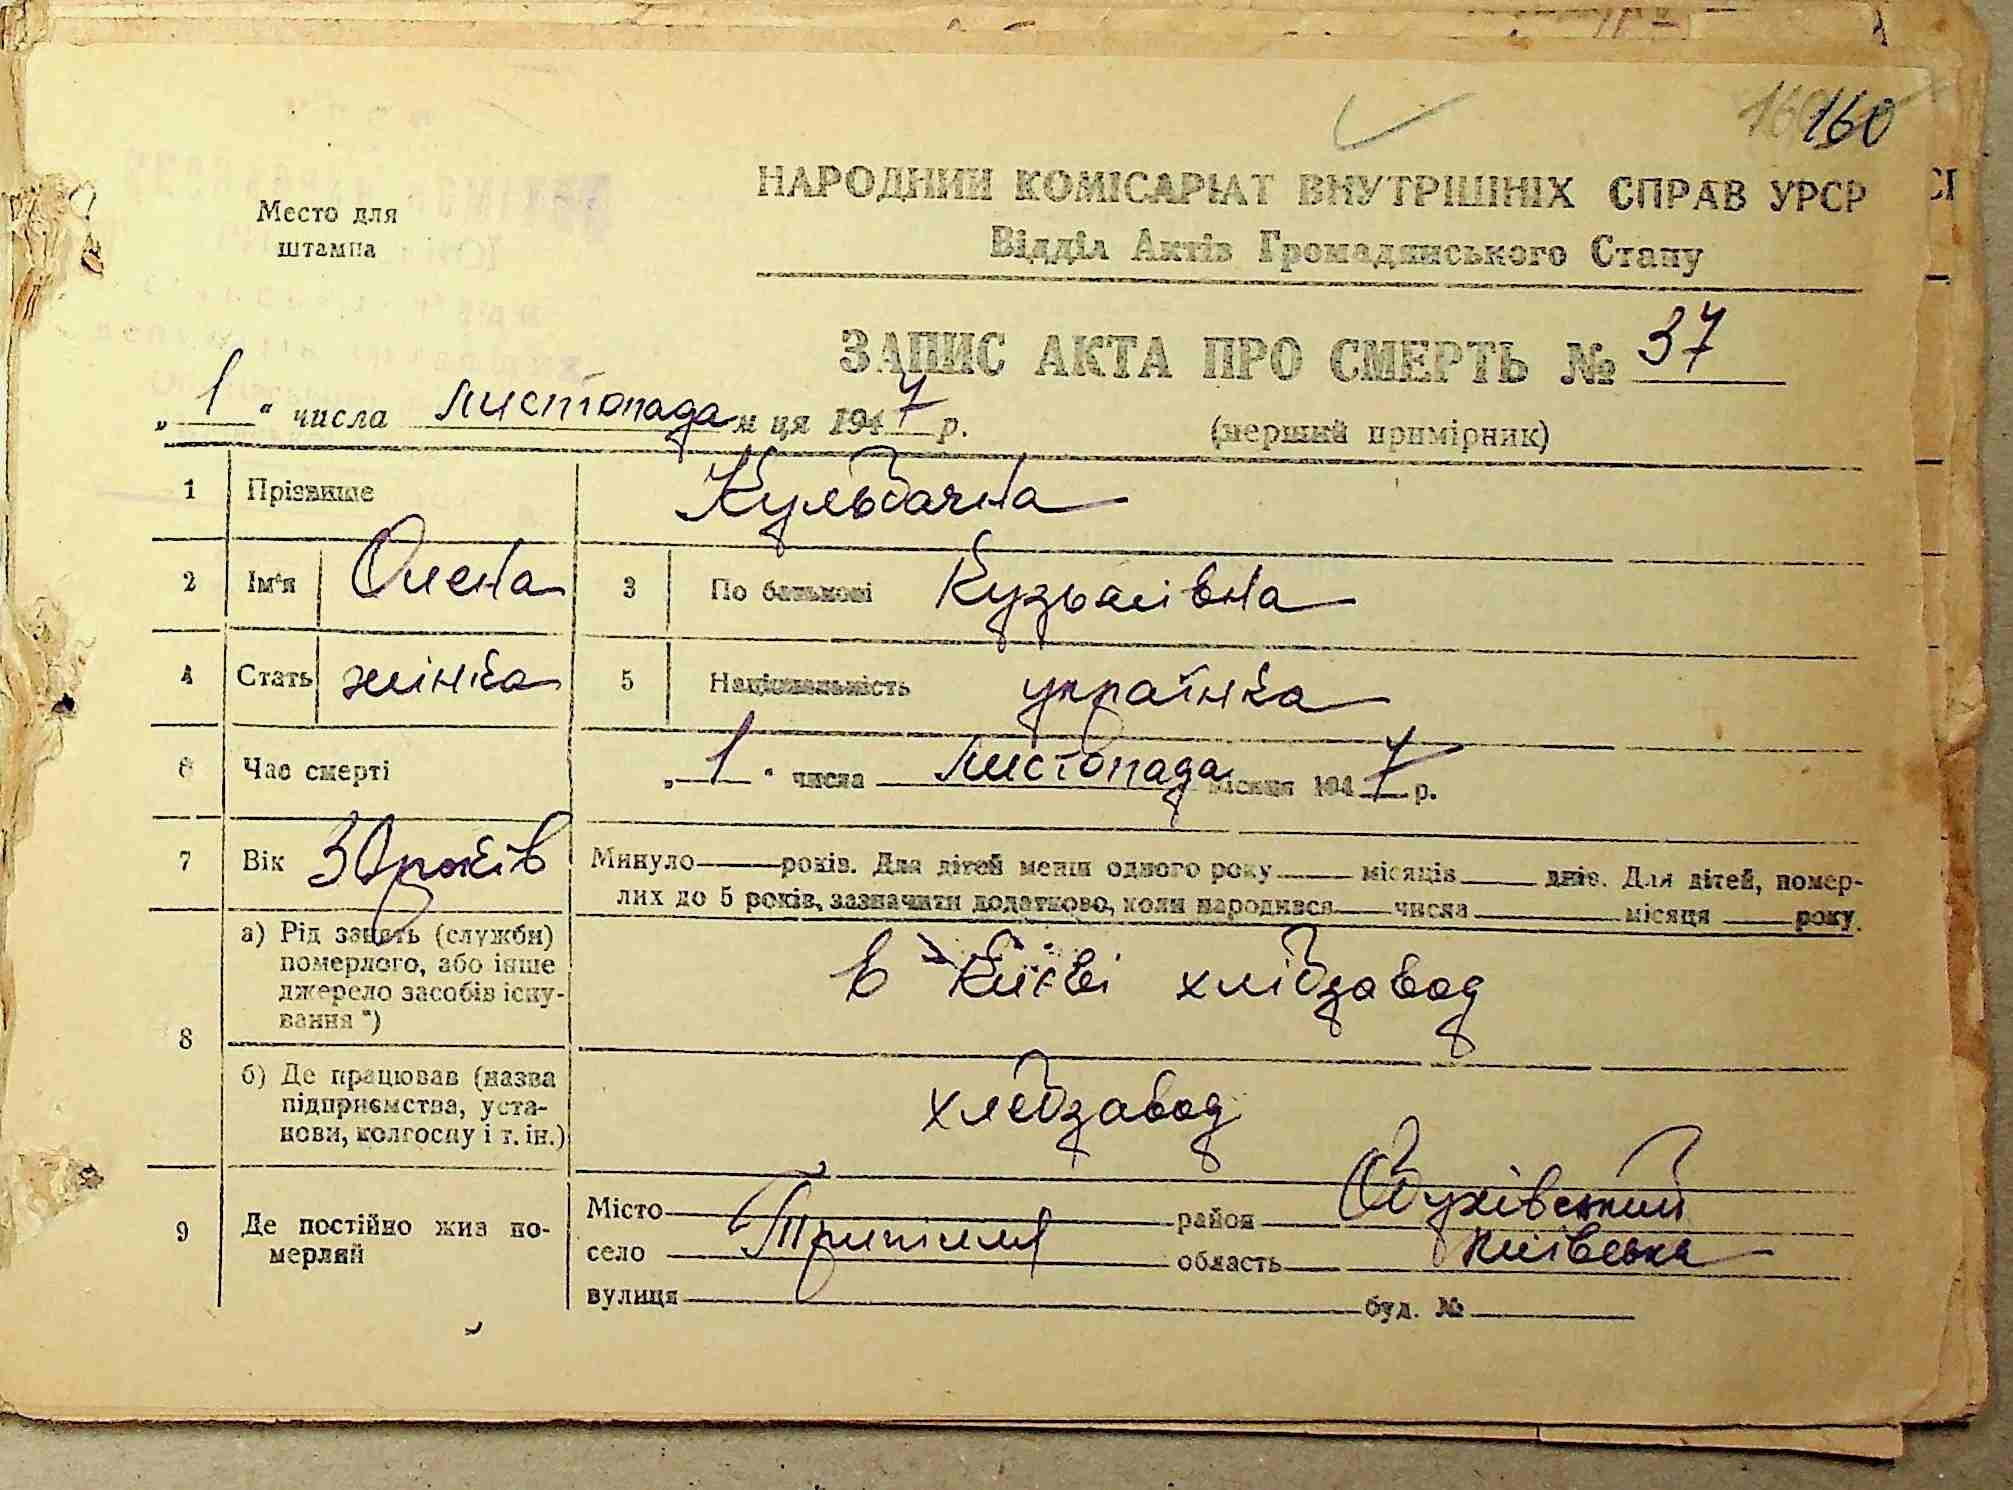 160
Место для
штампа
НАРОДНИЙ КОМІСАРІАТ ВНУТРІШНІХ СПРАВ УРСР
Відділ Актів Громадянського Стану
ЗАПИС АКТА ПРО СМЕРТЬ № 37
„ 1 “ числа листопада м ця 1947 р.
(перший примірник)
1 Прізвище Кульбачна
2 Ім'я Олена 3 По батькові Кузьмівна
4 Стать жінка 5 Національність українка
6 Час смерті „ 1 “ числа листопада місяця 1947 р.
7 Вік 30 років Минуло — років. Для дітей менш одного року — місяців — днів. Для дітей, помер-
лих до 5 років, зазначити додатково, коли народився — числа — місяця — року.
8 а) Рід занять (служби)
померлого, або інше
джерело засобів існу-
вання *)
в Київі хлібзавод
б) Де працював (назва
підприємства, уста-
нови, колгоспу і т. ін.)
хлебзавод
9 Де постійно жив по-
мерлий
Місто район Обухівский
село Трипілля область Київська
вулиця буд. №